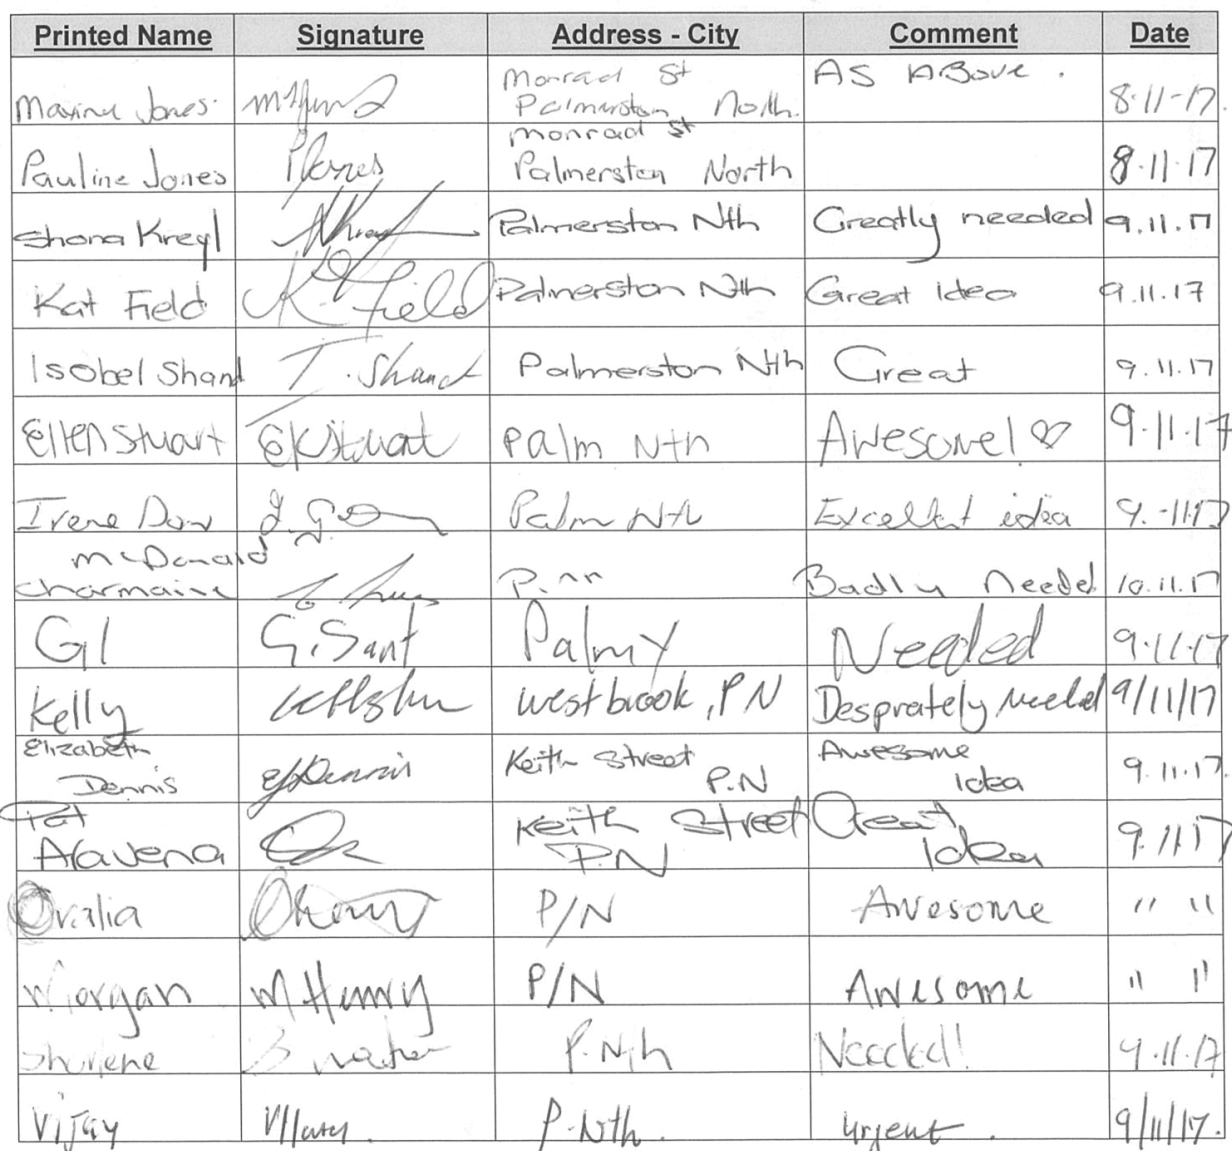 Printed Name Signature Address - City Comment Date
Monrad St AS ABove .
Maxine Jones Palmerston North. 8-11-17.
monrad st
Pauline Jones PJones Palmerston North 8.11.17
Shona Kregl Palmerston Nth Greatly needed 9.11.17
Kat Field K. Field Palmerston Nth Great Idea 9.11.17
Isobel Shand I. Shand Palmerston Nth Great 9.11.17
Ellen Stuart EKStuart Palm Nth Awesome! ♡ 9.11.17
Irene Dow Palm Nth Excellent idea 9.-11.17
McDonald
Charmaine P.nn Badly Needed 10.11.17
G1 G.Sant Palmy Needed 9.11.17
Kelly Westbrook, P N Desprately needed 9/11/17
Elizabeth Keith Street Awesome
Dennis EJDennis P.N Idea 9.11.17.
Pat Keith Street Great
Aravena P.N Idea 9.11.17
Oralia P/N Awesome " "
Morgan M Henry P/N Awesome " "
Sharlene P.Nth Needed! 9.11.17
Vijay P.Nth. urgent . 9/11/17.